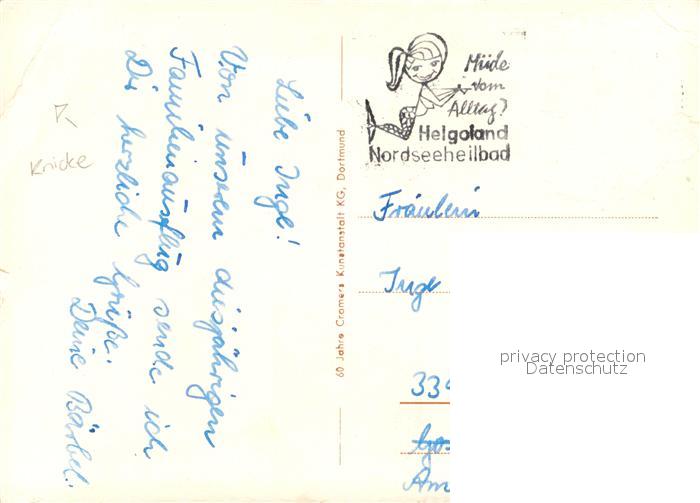 Liebe Inge!
Von unserem diesjährigen
Familienausflug sende ich
Dir herzliche Grüße.
Deine Bärbel.
Knicke
60 Jahre Cramers Kunstanstalt KG, Dortmund
Müde
vom
Alltag?
Helgoland
Nordseeheilbad
Fräulein
Inge
334
Am
privacy protection
Datenschutz